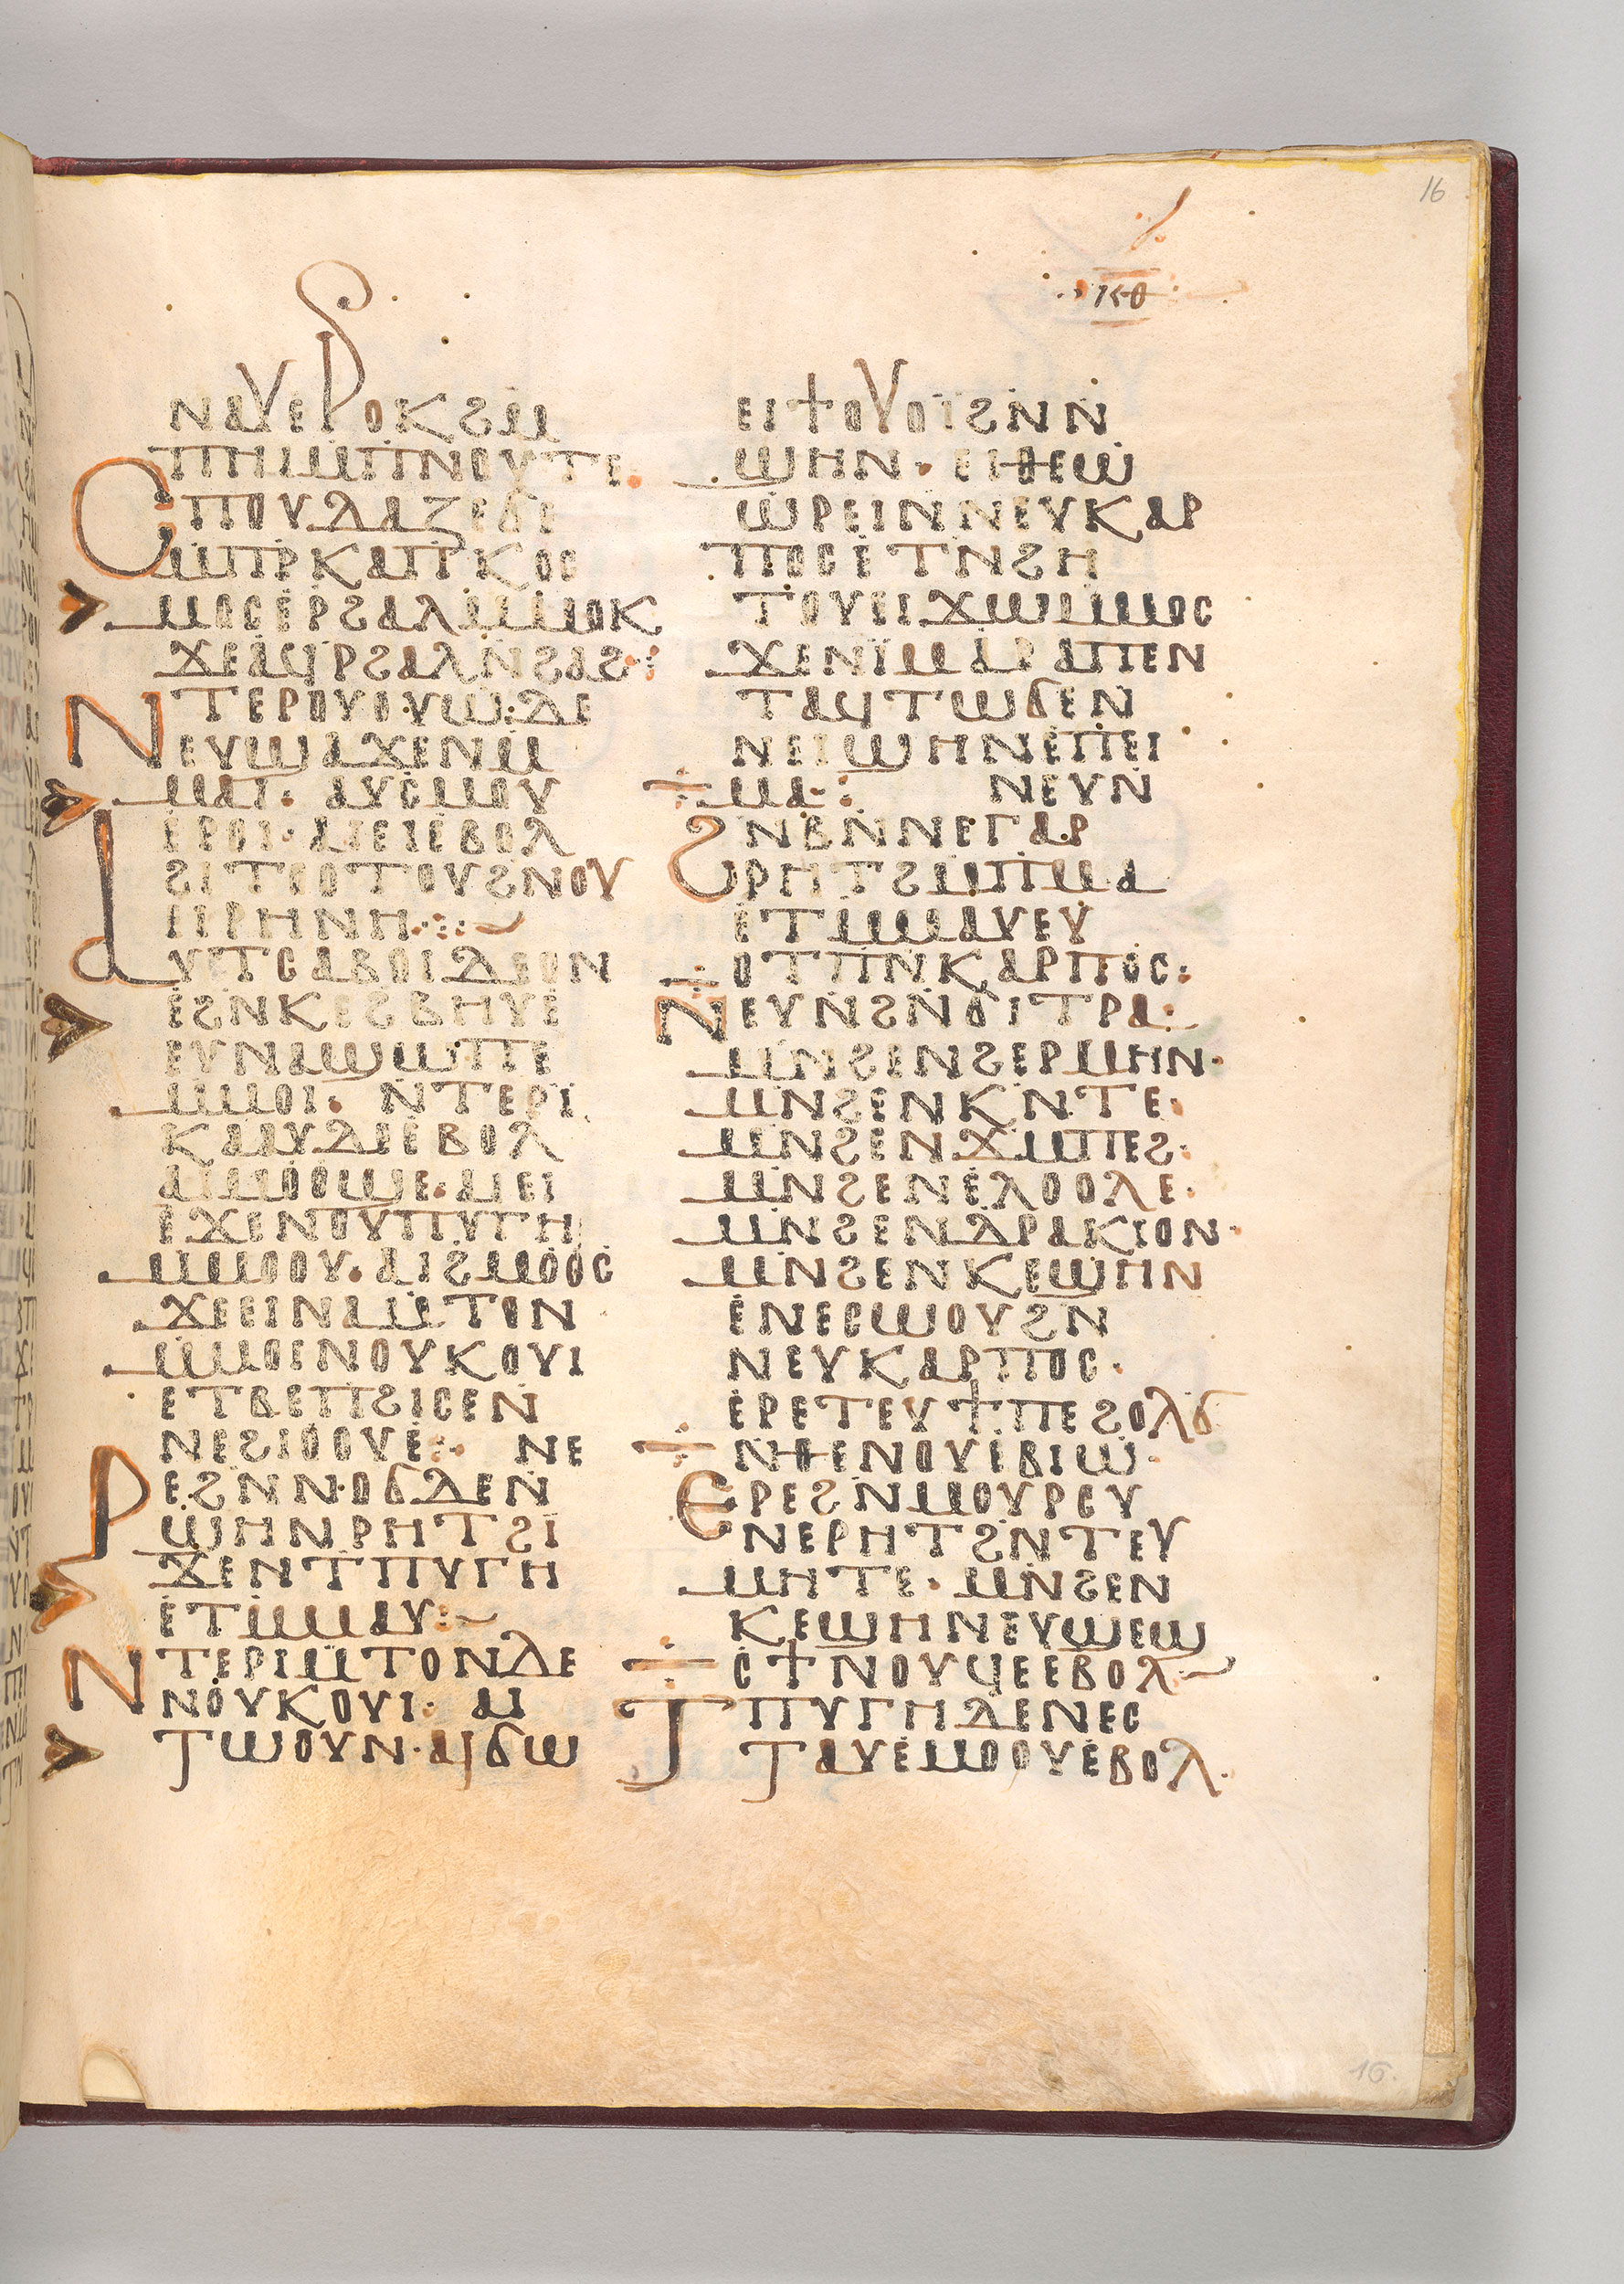 16
ⲕⲑ
ⲛⲁⲩⲉⲣⲟⲕϩⲙ̄
ⲡⲏⲓⲙ̄ⲡⲛⲟⲩⲧⲉ·
ⲥⲡⲟⲩⲇⲁⲍⲉϭⲉ
ⲙ̄ⲡⲣ̄ⲕⲁⲡⲕⲟⲥ
ⲙⲟⲥⲉⲣϩⲁⲗⲙ̄ⲙⲟⲕ
ϫⲉⲁϥⲣ̄ϩⲁⲗⲛ̄ϩⲁϩ⁝
ⲛ̄ⲧⲉⲣⲟⲩⲟⲩⲱ ⲇⲉ
ⲉⲩϣⲁϫⲉⲛⲙ̄
ⲙⲁⲓ· ⲁⲩⲥⲙⲟⲩ
ⲉⲣⲟⲓ· ⲁⲓⲉⲓⲉⲃⲟⲗ
ϩⲓⲧⲟⲟⲧⲟⲩϩⲛⲟⲩ
ⲉⲓⲣⲏⲛⲏ·⁝~
ⲁⲩⲧⲥⲁⲃⲟⲓⲇⲉⲟⲛ
ⲉϩⲛ̄ⲕⲉϩⲃⲏⲩⲉ
ⲉⲩⲛⲁϣⲱⲡⲉ
ⲙ̄ⲙⲟⲓ· ⲛ̄ⲧⲉⲣⲓ
ⲕⲁⲁⲩⲇⲉⲉⲃⲟⲗ
ⲁⲓⲙⲟⲟϣⲉ· ⲁⲓⲉⲓ
ⲉϫⲉⲛⲟⲩⲡⲩⲅⲏ
ⲙ̄ⲙⲟⲟⲩ· ⲁⲓϩⲙⲟⲟⲥ
ϫⲉⲉⲓⲛⲁⲙ̄ⲧⲟⲛ
ⲙ̄ⲙⲟⲓⲛⲟⲩⲕⲟⲩⲓ
ⲉⲧⲃⲉⲡϩⲓⲥⲉⲛ̄
ⲛⲉϩⲓⲟⲟⲩⲉ⁝ ⲛⲉ
ⲣⲉϩⲛ̄ⲛⲟϭⲇⲉⲛ̄
ϣⲏⲛⲣⲏⲧϩⲓ
ϫⲉⲛⲧⲡⲩⲅⲏ
ⲉⲧⲙ̄ⲙⲁⲩ⁝~
ⲛ̄ⲧⲉⲣⲓⲙ̄ⲧⲟⲛⲇⲉ
ⲛⲟⲩⲕⲟⲩⲓ· ⲁⲓ
ⲧⲱⲟⲩⲛ· ⲁⲓϭⲱ
ⲉⲓϯⲟⲩⲟⲓ̈ϩⲛ̄ⲛ̄
ϣⲏⲛ· ⲉⲓⲑⲉⲱ
ⲱⲣⲉⲓⲛ̄ⲛⲉⲩⲕⲁⲣ
ⲡⲟⲥⲉⲧⲛ̄ϩⲏ
ⲧⲟⲩⲉⲓϫⲱⲙ̄ⲙⲟⲥ
ϫⲉⲛⲓ̈ⲙⲁⲣⲁⲡⲉⲛ
ⲧⲁϥⲧⲱϭⲉⲛ̄
ⲛⲉⲓϣⲏⲛⲉⲡⲉⲓ
ⲙⲁ⁝ ⲛⲉⲩⲛ̄
ϩⲛ̄ⲃⲛ̄ⲛⲉⲅⲁⲣ
ⲣⲏⲧϩⲙ̄ⲡⲙⲁ
ⲉⲧⲙ̄ⲙⲁⲩⲉⲩ
ⲟⲧⲡⲛ̄ⲕⲁⲣⲡⲟⲥ⁝
ⲛⲉⲩⲛ̄ϩⲛ̄ϭⲓⲧⲣⲁ·
ⲙⲛ̄ϩⲉⲛϩⲉⲣⲙⲏⲛ·
ⲙⲛ̄ϩⲉⲛⲕⲛ̄ⲧⲉ·
ⲙⲛ̄ϩⲉⲛϫⲙ̄ⲡⲉϩ·
ⲙⲛ̄ϩⲉⲛⲉⲗⲟⲟⲗⲉ·
ⲙⲛ̄ϩⲉⲛⲇⲣⲁⲕⲓⲟⲛ·
ⲙⲛ̄ϩⲉⲛⲕⲉϣⲏⲛ
ⲉⲛⲉⲥⲱⲟⲩϩⲛ̄
ⲛⲉⲩⲕⲁⲣⲡⲟⲥ·
ⲉⲣⲉⲧⲉⲩϯⲡⲉϩⲟⲗϭ
ⲛ̄ⲑⲉⲛⲟⲩⲉⲃⲓⲱ·
ⲉⲣⲉϩⲛ̄ⲙⲟⲩⲣⲥⲩ
ⲛⲉⲣⲏⲧϩⲛ̄ⲧⲉⲩ
ⲙⲏⲧⲉ· ⲙⲛ̄ϩⲉⲛ
ⲕⲉϣⲏⲛⲉⲩϣⲉϣ
ⲥϯⲛⲟⲩϥⲉⲉⲃⲟⲗ·~
ⲧⲡⲩⲅⲏⲇⲉⲛⲉⲥ
ⲧⲁⲩⲉⲙⲟⲟⲩⲉⲃⲟⲗ·
16.